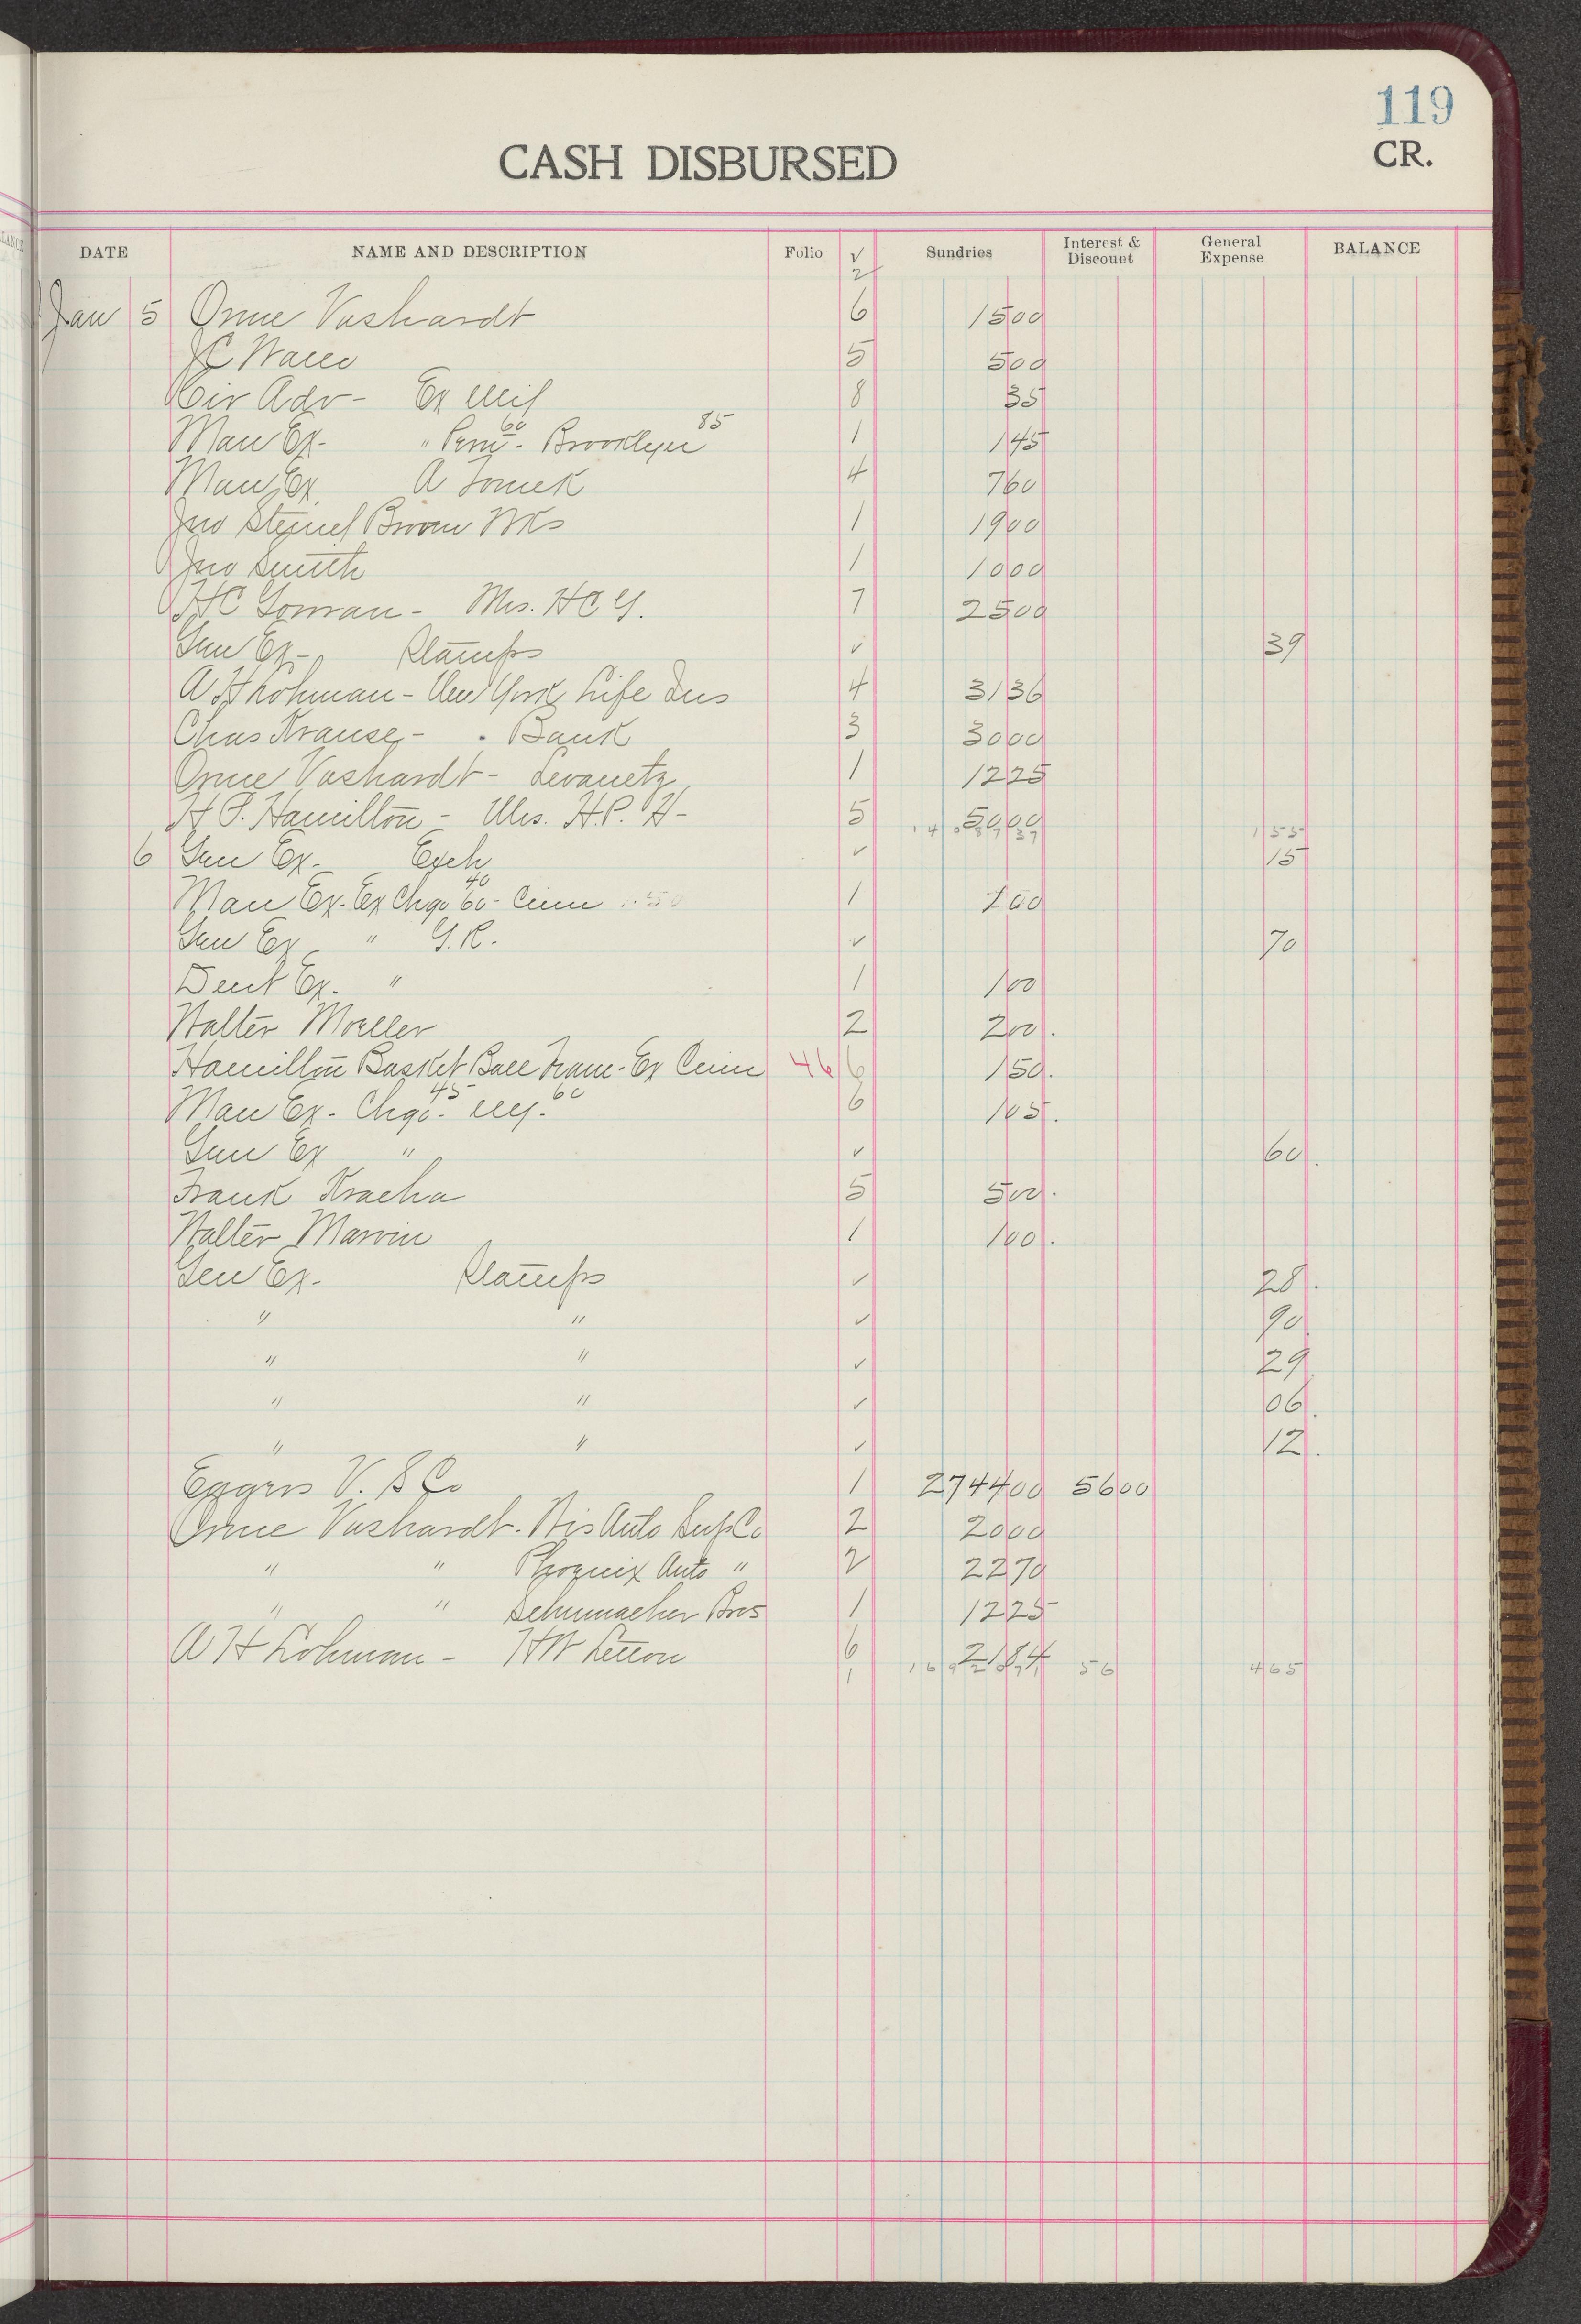 119
CASH DISBURSED CR.
DATE NAME AND DESCRIPTION Folio √ Sundries Interest & Discount General Expense BALANCE
2
Jan 5 Orme Vashardt 6 1500
JC 5 500
Cir Adv - Ex Mil 8 35
Man Ex - " Penn 60 - Brooklyn 85 1 145
Man Ex A Tomek 4 760
Jno Steinel Broom Wks 1 1900
Jno Smith 1 1000
HC Gorman - Mrs. HC G. 7 2500
Gen Ex - Stamps √ 39
A H Lohman - New York Life Ins 4 3136
Chas Krause - . Bank 3 3000
Orme Vashardt - Levanetz 1 1225
H P. Hamilton - Mrs. H.P. H - 5 5000
155
6 Gen Ex - Exch √ 15
Man Ex - Ex Chgo 40 60 - Cinn 1 200
Gen Ex " G.R. √ 70
Dent Ex - " 1 100
Walter Moeller 2 200.
Hamilton Basket Ball Team - Ex Cinn 46 6 150.
Man Ex - Chgo 45 - NY - 60 6 105.
Gen Ex " √ 60.
Frank Kracha 5 500.
Walter Marvin 1 100.
Gen Ex - Stamps √ 28.
" " √ 90.
" " √ 29.
" " √ 06.
" " √ 12.
Eggers V. S Co 1 274400 5600
Orme Vashardt - Wis Auto Sup Co 2 2000
" " Phoenix Auto " 2 2270
" " Schumacher Bros 1 1225
A H Lohman - HW Letton 6 2184
1 56 465